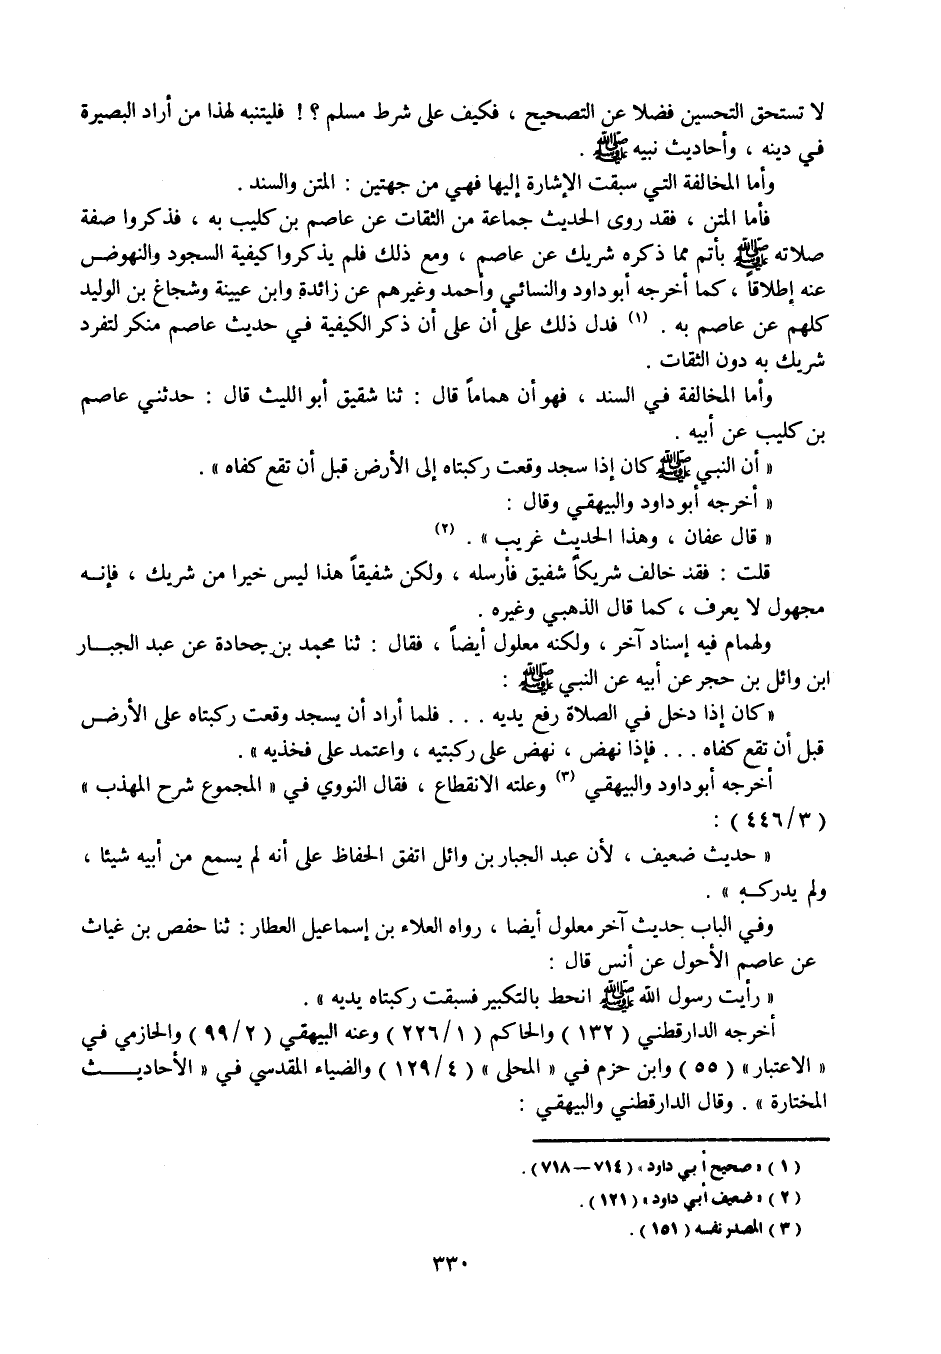 لا تستحق التحسين فضلا عن التصحيح ، فكيف على شرط مسلم ؟ ! فليتنبه لهذا من أراد البصيرة
في دينه ، وأحاديث نبيه ﷺ .
وأما المخالفة التي سبقت الإشارة إليها فهي من جهتين : المتن والسند .
فأما المتن ، فقد روى الحديث جماعة من الثقات عن عاصم بن كليب به ، فذكروا صفة
صلاته ﷺ بأتم مما ذكره شريك عن عاصم ، ومع ذلك فلم يذكروا كيفية السجود والنهوض
عنه إطلاقاً ، كما أخرجه أبو داود والنسائي وأحمد وغيرهم عن زائدة وابن عيينة وشجاغ بن الوليد
كلهم عن عاصم به . (١) فدل ذلك على أن على أن ذكر الكيفية في حديث عاصم منكر لتفرد
شريك به دون الثقات .
وأما المخالفة في السند ، فهو أن هماماً قال : ثنا شقيق أبو الليث قال : حدثني عاصم
بن كليب عن أبيه .
« أن النبي ﷺ كان إذا سجد وقعت ركبتاه إلى الأرض قبل أن تقع كفاه » .
« أخرجه أبو داود والبيهقي وقال :
« قال عفان ، وهذا الحديث غريب » . (٢)
قلت : فقد خالف شريكاً شفيق فأرسله ، ولكن شفيقاً هذا ليس خيرا من شريك ، فإنه
مجهول لا يعرف ، كما قال الذهبي وغيره .
ولهمام فيه إسناد آخر ، ولكنه معلول أيضاً ، فقال : ثنا محمد بن جحادة عن عبد الجبار
ابن وائل بن حجر عن أبيه عن النبي ﷺ :
« كان إذا دخل في الصلاة رفع يديه . . . فلما أراد أن يسجد وقعت ركبتاه على الأرض
قبل أن تقع كفاه . . . فإذا نهض ، نهض على ركبتيه ، واعتمد على فخذيه » .
أخرجه أبو داود والبيهقي (٣) وعلته الانقطاع ، فقال النووي في « المجموع شرح المهذب »
( ٣/ ٤٤٦ ) :
« حديث ضعيف ، لأن عبد الجبار بن وائل اتفق الحفاظ على أنه لم يسمع من أبيه شيئا ،
ولم يدركه » .
وفي الباب حديث آخر معلول أيضا ، رواه العلاء بن إسماعيل العطار : ثنا حفص بن غياث
عن عاصم الأحول عن أنس قال :
« رأيت رسول الله ﷺ انحط بالتكبير فسبقت ركبتاه يديه » .
أخرجه الدارقطني ( ١٣٢ ) والحاكم ( ١/ ٢٢٦ ) وعنه البيهقي ( ٢/ ٩٩ ) والحازمي في
« الاعتبار » ( ٥٥ ) وابن حزم في « المحلى » ( ٤/ ١٢٩ ) والضياء المقدسي في « الأحاديث
المختارة » . وقال الدارقطني والبيهقي :
( ١ ) « صحيح أبي داود » ( ٧١٤ – ٧١٨ ) .
( ٢ ) « ضعيف أبي داود » ( ١٢١ ) .
( ٣ ) المصدر نفسه ( ١٥١ ) .
٣٣٠